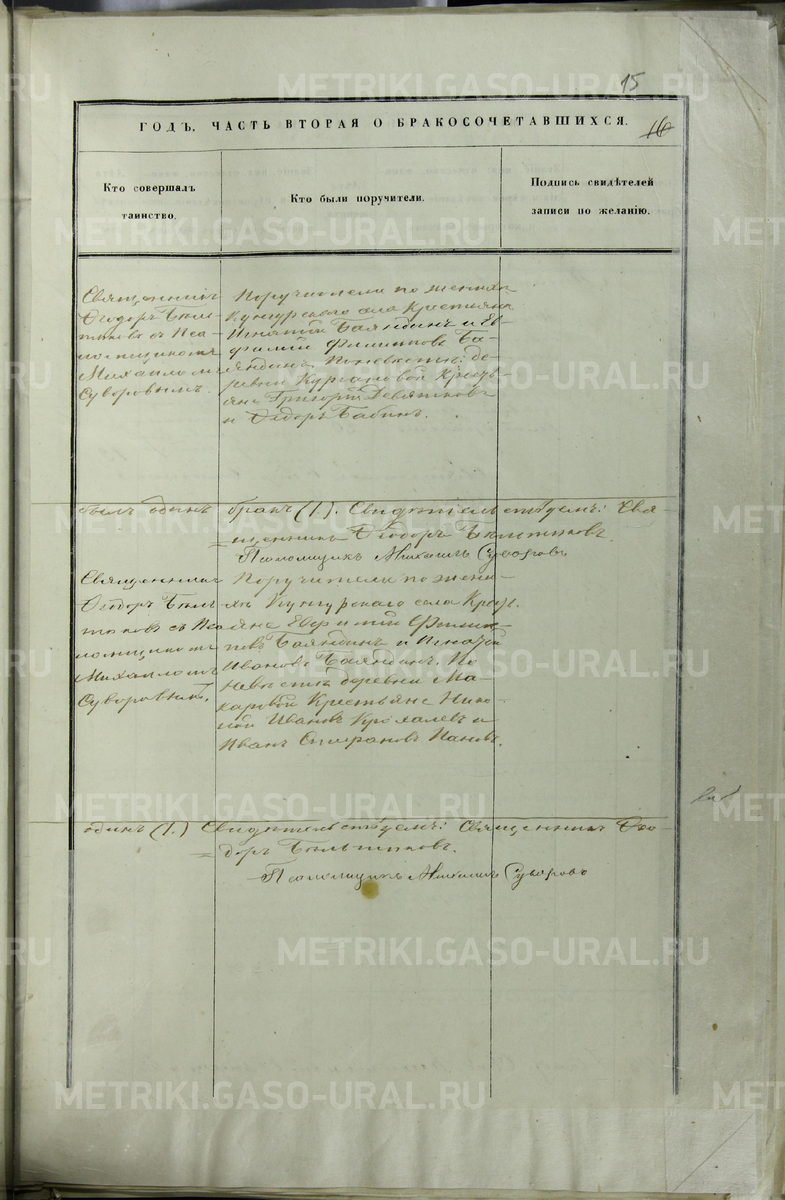 15
16
ГОДЪ, ЧАСТЬ ВТОРАЯ О БРАКОСОЧЕТАВШИХСЯ.
Кто совершалъ
таинство.
Кто были поручители.
Подпись свидѣтелей
записи по желанію.
Священникъ
Ѳеодоръ
съ Пса-
ломщикомъ
Михаиломъ
Суворовымъ.
Поручители по женихѣ
Кунгурскаго села Крестьяне
Игнатій Баяндинъ и Ев-
фимій Филиповъ Ба-
яндинъ. По невѣстѣ: де-
ревни Кургановой Кресть-
яне Григорій Девятковъ
и Ѳедоръ Бабинъ.
былъ одинъ бракъ (1). Свидѣтельствуемъ: Свя-
щенникъ Ѳеодоръ
Псаломщикъ Михаилъ Суворовъ
Священникъ
Ѳеодоръ
съ Пса
ломщикомъ
Михаиломъ
Суворовымъ.
Поручители по жени-
хѣ Кунгурскаго села Крест.
яне Евфимій Филип-
повъ Баяндинъ и Игнатій
Ивановъ Баяндинъ. По
невѣстѣ деревни Ма-
каровой Крестьяне Нико-
Ивановъ и
Иванъ
одинъ (1.) Свидѣтельствуемъ: Священникъ Ѳео-
доръ
Псаломщикъ Михаилъ Суворовъ
METRIKI.GASO-URAL.RU